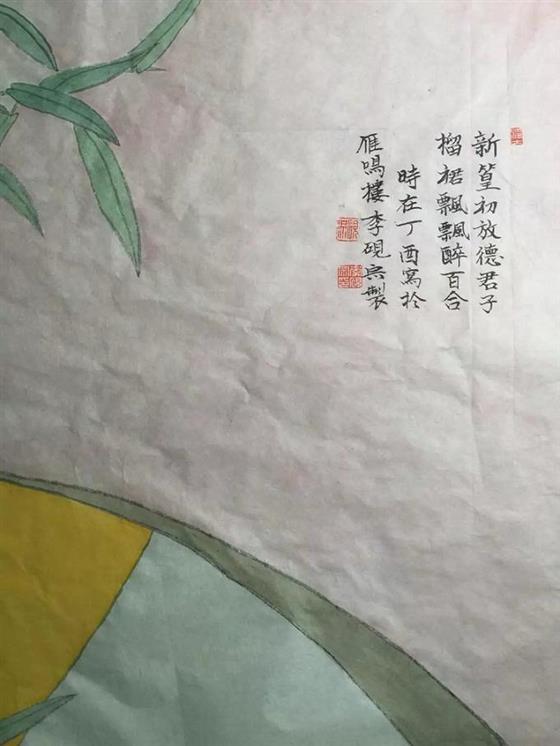 新篁初放德君子
榴裙飄飄醉百合
時在丁酉寫於
雁鳴樓李硯六製